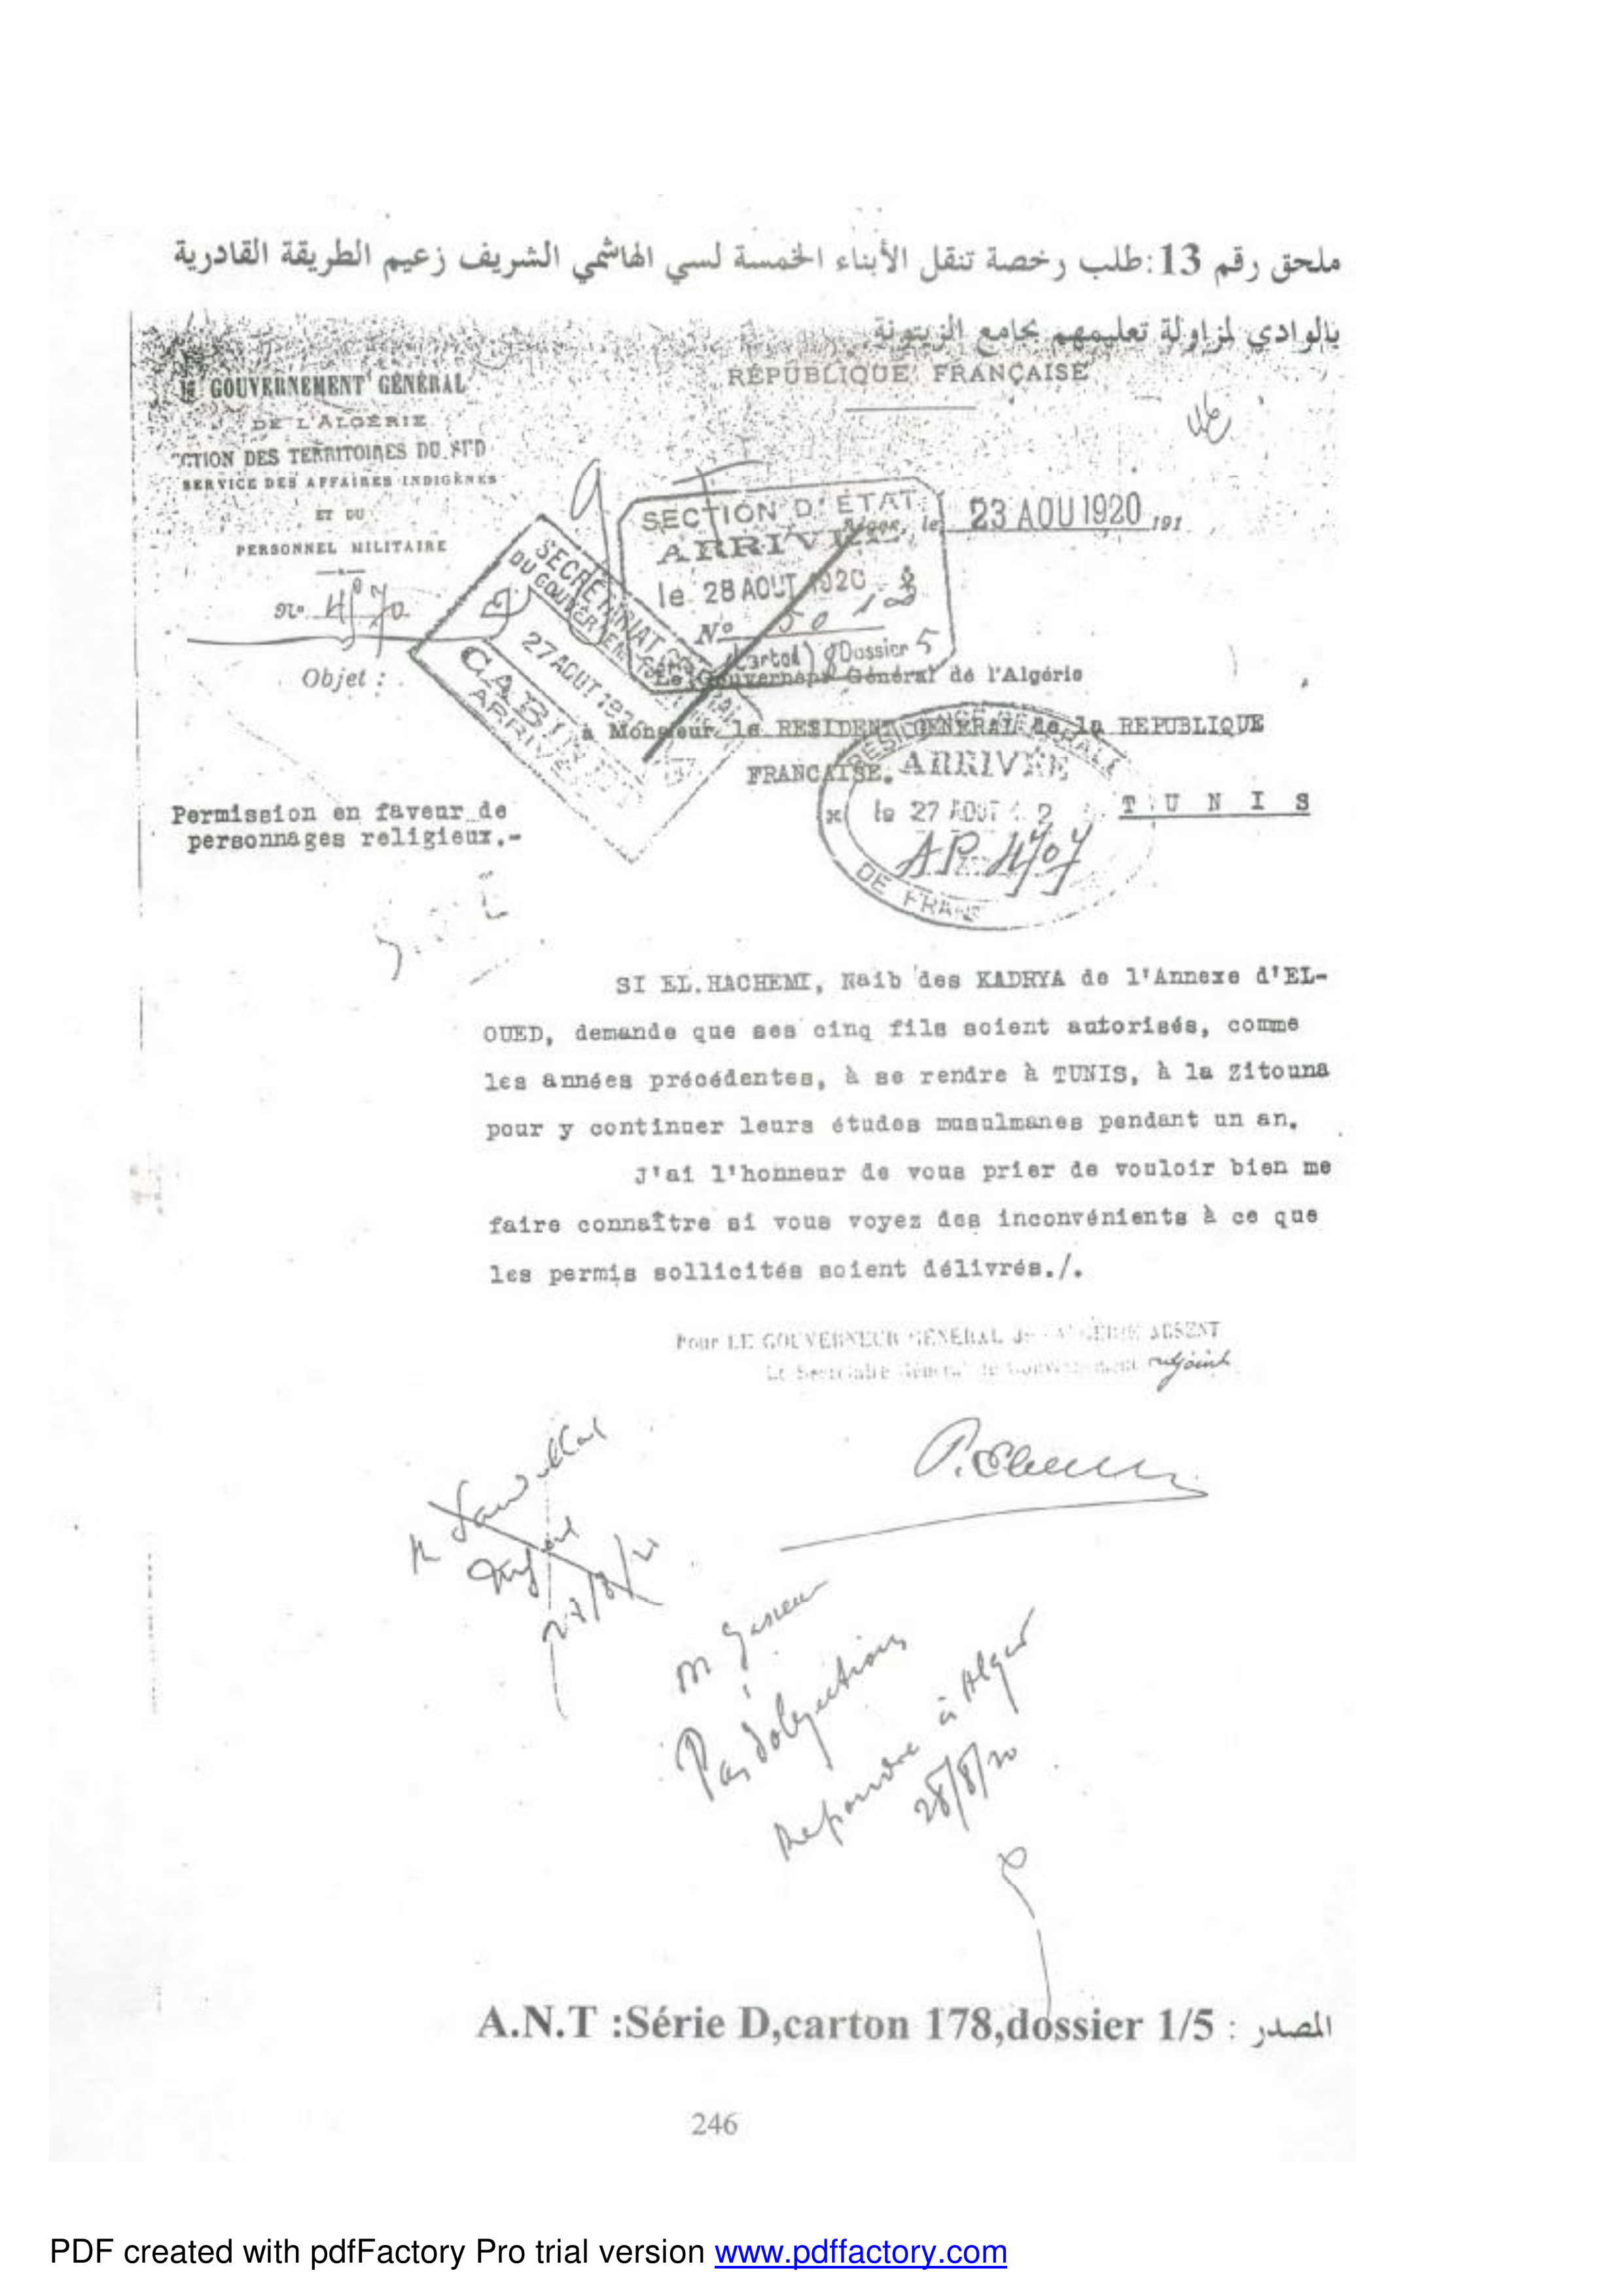 ملحق رقم 13:طلب رخصة تنقل الأبناء الخمسة لسي الهاشمي الشريف زعيم الطريقة القادرية
بالوادي لمزاولة تعليمهم بجامع الزيتونة
GOUVERNEMENT GÉNÉRAL
DE L'ALGÉRIE
CTION DES TERRITOIRES DU SUD
SERVICE DES AFFAIRES INDIGÈNES
ET DU
PERSONNEL MILITAIRE
Nº
RÉPUBLIQUE FRANÇAISE
Alger, le 23 AOU 1920 191
SECTION D'ÉTAT
ARRIVÉE
le 28 AOUT 1920
Nº
Carton Dossier 5
SECRÉTARIAT
DU GOUVERNEMENT
27 AOUT
CABINET
ARRIVÉE
Objet :
Le Gouverneur Général de l'Algérie
à Monsieur le RESIDENT GENERAL de la REPUBLIQUE
FRANCAISE.
TUNIS
ARRIVÉE
le 27 AOUT
DE FRAN
Permission en faveur de
personnages religieux.-
SI EL.HACHEMI, Naib des KADRYA de l'Annexe d'EL-
OUED, demande que ses cinq fils soient autorisés, comme
les années précédentes, à se rendre à TUNIS, à la Zitouna
pour y continuer leurs études musulmanes pendant un an.
J'ai l'honneur de vous prier de vouloir bien me
faire connaître si vous voyez des inconvénients à ce que
les permis sollicités soient délivrés./.
Pour LE GOUVERNEUR GÉNÉRAL ABSENT
Le Secrétaire Général du Gouvernement adjoint
Pas d'objections
Repondre à Alger
28/8/20
A.N.T :Série D,carton 178,dossier 1/5 : المصدر
246
PDF created with pdfFactory Pro trial version www.pdffactory.com